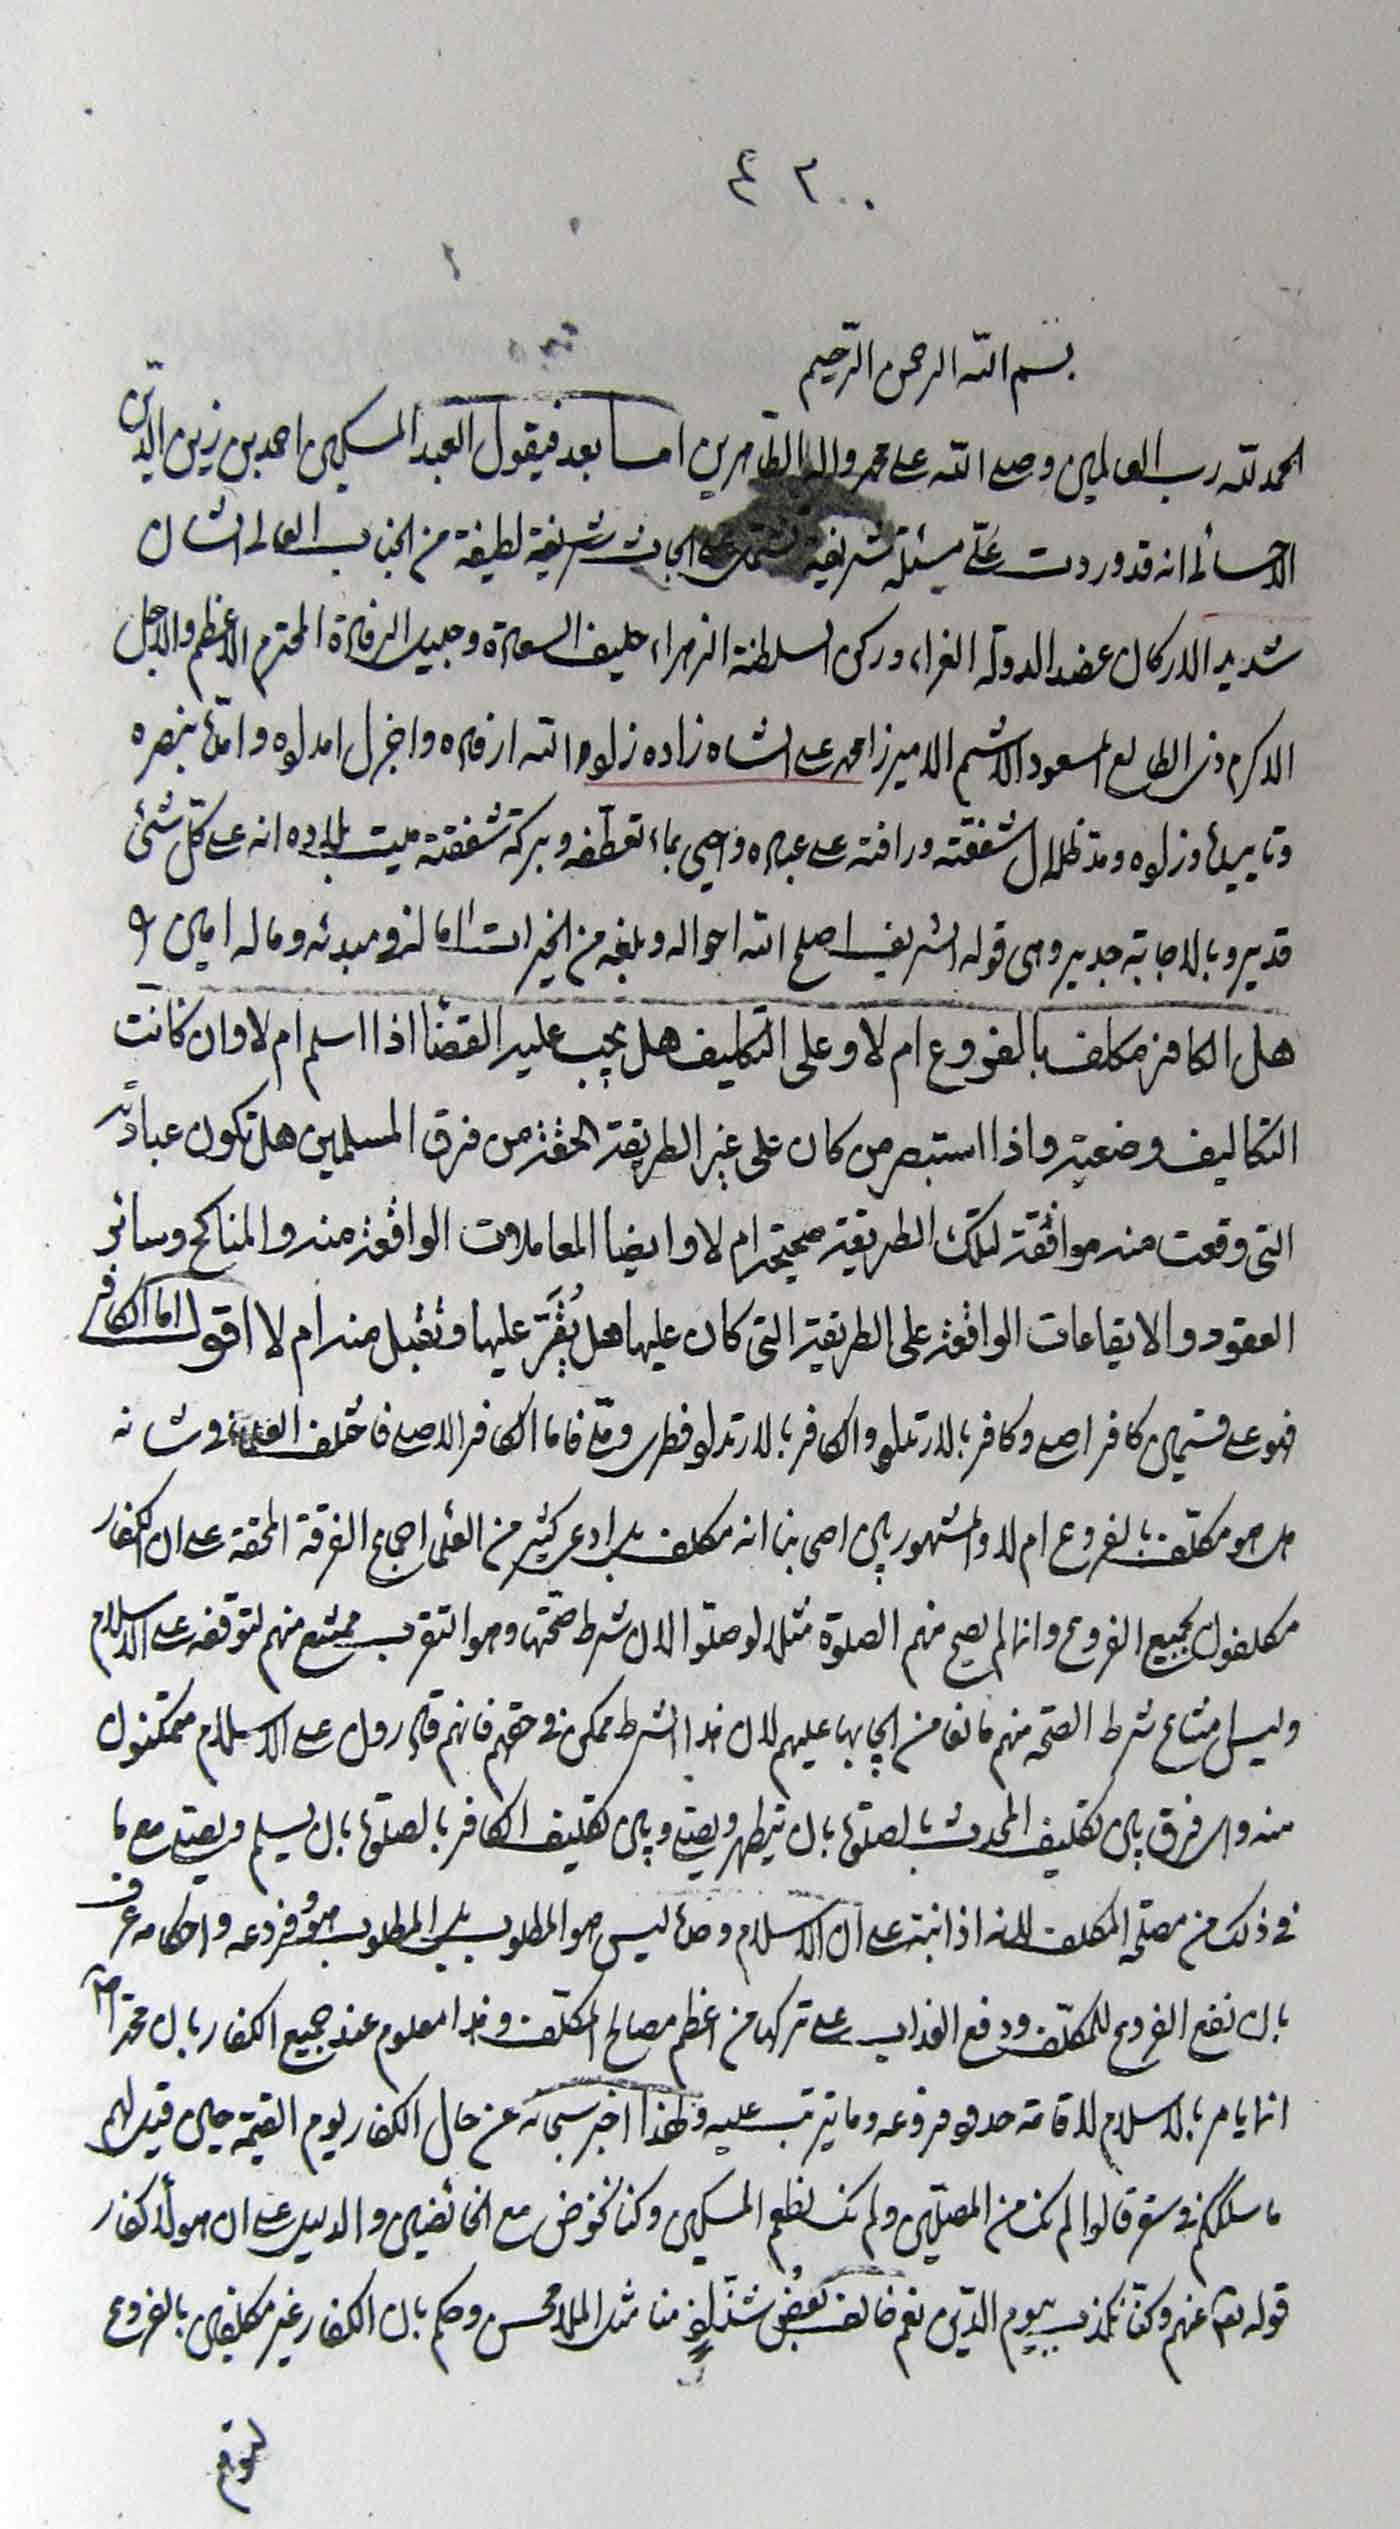 ٤٣٠٠
بسم الله الرحمن الرحيم
الحمد لله رب العالمين وصلى الله على محمد واله الطاهرين اما بعد فيقول العبد المسكين احمد بن زين الدين
الاحسائي انه قد وردت علي مسئلة شريفة تشتمل على ابحاث شريفة لطيفة من الجناب العالي الشان
شديد الاركان عضد الدولة الغراء وركن السلطنة الزهراء حليف السعادة وجليس الرفادة المحترم الاعظم والاجل
الاكرم ذي الطالع المسعود الاشم الاميرزا محمد علي الشاه زاده زاد الله ارفاده واجزل امداده وامده بنصره
وتاييده وزاده ومد ظلال شفقته ورافته على عباده واحيى بماء تعطفه وبركة شفقته ميت بلاده انه على كل شئ
قدير وبالاجابة جدير وهي قوله الشريف اصلح الله احواله وبلغه من الخيرات اماله في مبدئه وماله امين
هل الكافر مكلف بالفروع ام لا وعلى التكليف هل يجب عليه القضاء اذا اسلم ام لا وان كانت
التكاليف وضعية واذا استبصر من كان على غير الطريقة الحقة من فرق المسلمين هل تكون عباداته
التي وقعت منه موافقة لتلك الطريقة صحيحة ام لا وايضا المعاملات الواقعة منه والمناكح وسائر
العقود والايقاعات الواقعة على الطريقة التي كان عليها هل يُقَرّ عليها وتقبل منه ام لا اقول اما الكافر
فهو على قسمين كافر اصلي وكافر بالارتداد والكافر بالارتداد فطري وملي فاما الكافر الاصلي فاختلف العلماء في شانه
هل هو مكلف بالفروع ام لا والمشهور بين اصحابنا انه مكلف بل ادعى كثير من العلماء اجماع الفرقة المحقة على ان الكفار
مكلفون بجميع الفروع وانما لم يصح منهم الصلوة مثلا لو صلوا لان شرط صحتها وهو التقرب ممتنع منهم لتوقفه على الاسلام
وليس امتناع شرط الصحة منهم مانعا من ايجابها عليهم لان هذا الشرط ممكن في حقهم فانهم قادرون على الاسلام متمكنون
منه واي فرق بين تكليف المحدث بالصلوة بان يتطهر ويصلي وبين تكليف الكافر بالصلوة بان يسلم ويصلي مع ما
في ذلك من مصلحة المكلف لانه اذا نبه على ان الاسلام وحده ليس هو المطلوب بل المطلوب هو وفروعه واحكامه عرف
بان نفع الفروع للمكلف ودفع العذاب على تركها من اعظم مصالح المكلف وهذا معلوم عند جميع الكفار بان محمدا ص
انما يامر بالاسلام لاقامة حدوده وفروعه وما يترتب عليه ولهذا اخبر سبحانه عن حال الكفار يوم القيمة حين قيل لهم
ما سلككم في سقر قالوا لم نك من المصلين ولم نك نطعم المسكين وكنا نخوض مع الخائضين والدليل على ان هولاء كفار
قوله تعالى عنهم وكنا نكذب بيوم الدين نعم خالف بعضُ شذاذٍ منا مثل الملا محسن وحكم بان الكفار غير مكلفين بالفروع